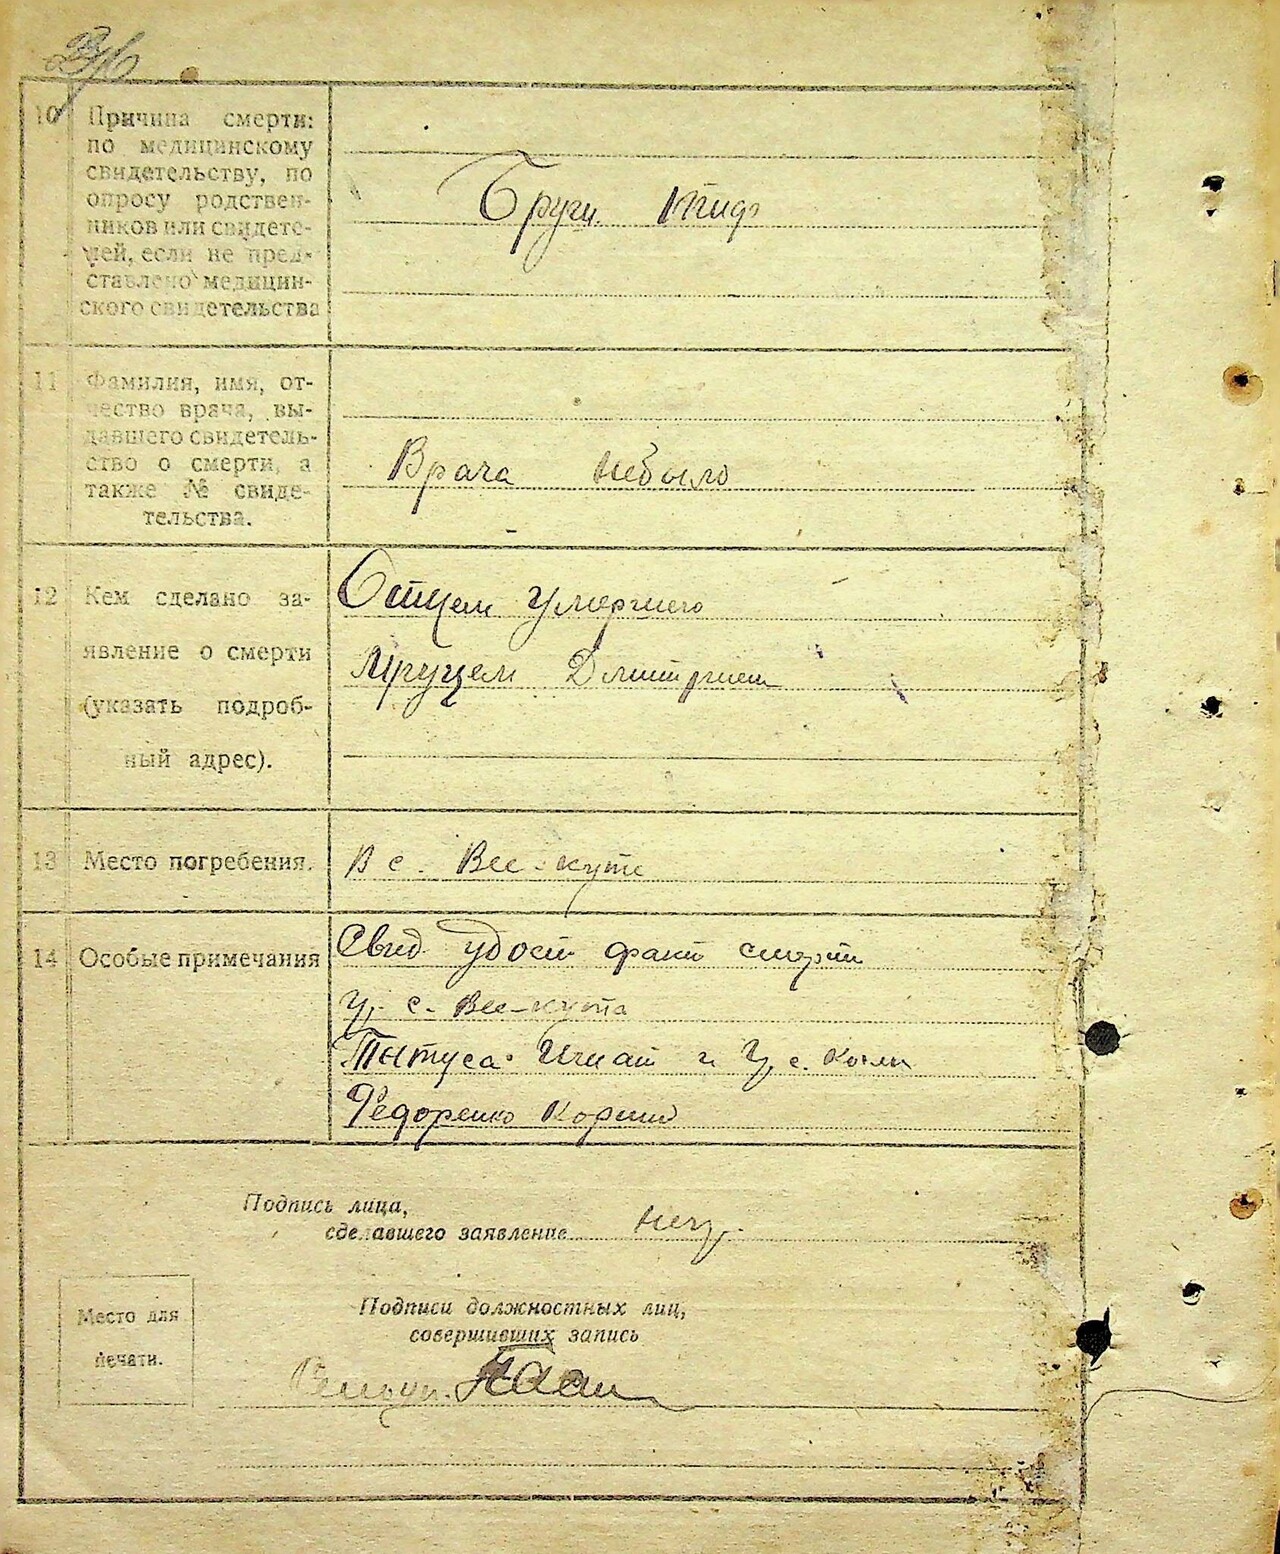 10 Причина смерти:
по медицинскому
свидетельству, по
опросу родствен-
ников или свидете-
лей, если не пред-
ставлено медицин-
ского свидетельства
Брущ. тиф
11 Фамилия, имя, от-
чество врача, вы-
давшего свидетель-
ство о смерти, а
также № свиде-
тельства.
Врача небыло
12 Кем сделано за-
явление о смерти
(указать подроб-
ный адрес).
Отцем умершего
Дмитрием
13 Место погребения.
В с. Вес-куте
14 Особые примечания
Свид удост факт смерти
с. Вес-кута
Игнат и
Федоренко Корней
Подпись лица,
сделавшего заявление
Место для
печати.
Подписи должностных лиц,
совершивших запись